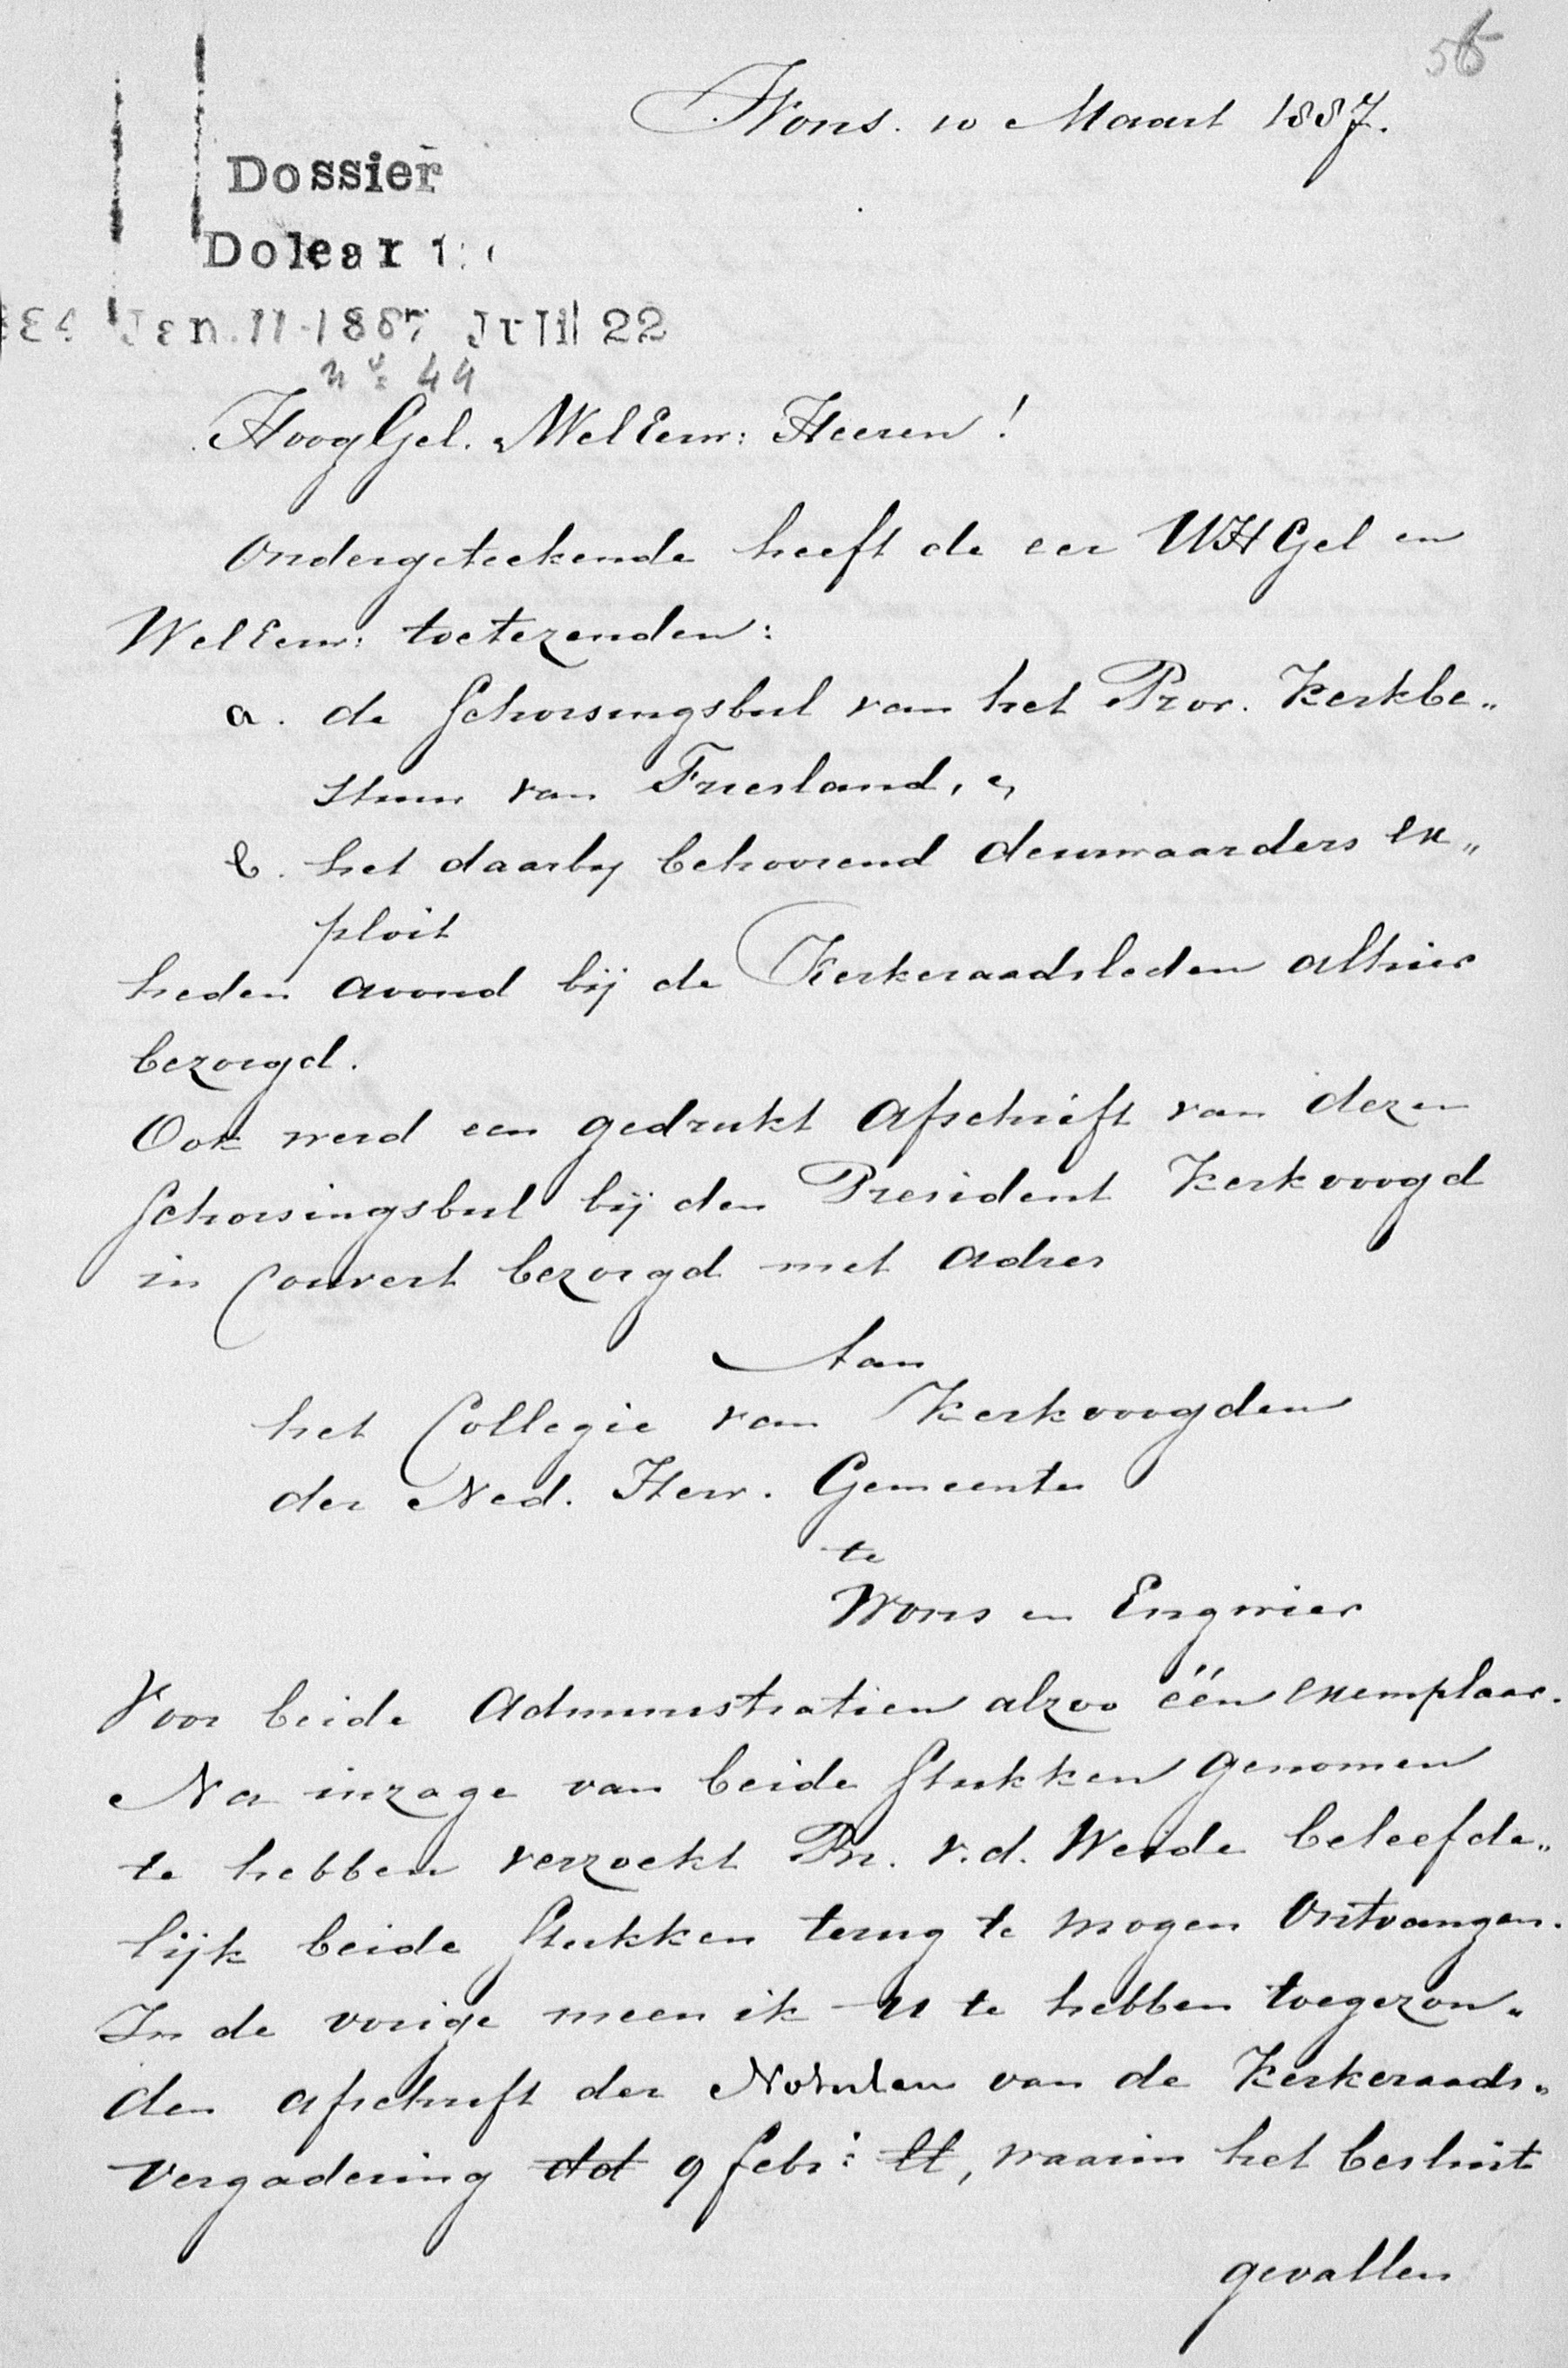 56
Wons. 10 Maart 1887.
Dossier
Dolear
Jan. 11-1887 Juli 22
no: 44
HoogGel. WelEerw: Heeren!
Ondergeteekende heeft de eer UHGel en
WelEerw: toetezenden:
a. de Schorsingsbul van het Prov. Kerkbe„
stuur van Friesland, en
b. het daarby behoorend deurwaarders ex„
ploit
heden avond bij de Kerkeraadsleden alhier
bezorgd.
Ook werd een gedrukt afschrift van dezen
Schorsingsbul bij den President Kerkvoogd
in Couvert bezorgd met adres
Aan
het Collegie van Kerkvoogden
der Ned. Herv. Gemeente
te
Wons en Engwier
Voor beide Administratien alzoo één exemplaar.
Na inzage van beide Stukken genomen
te hebben verzoekt Br. v.d. Weide beleefde„
lijk beide Stukken terug te mogen ontvangen.
In de vorige meen ik U te hebben toegezon„
den afschrift der Notulen van de Kerkeraads„
vergadering dd 9 Febr: ll, waarin het besluit
gevallen